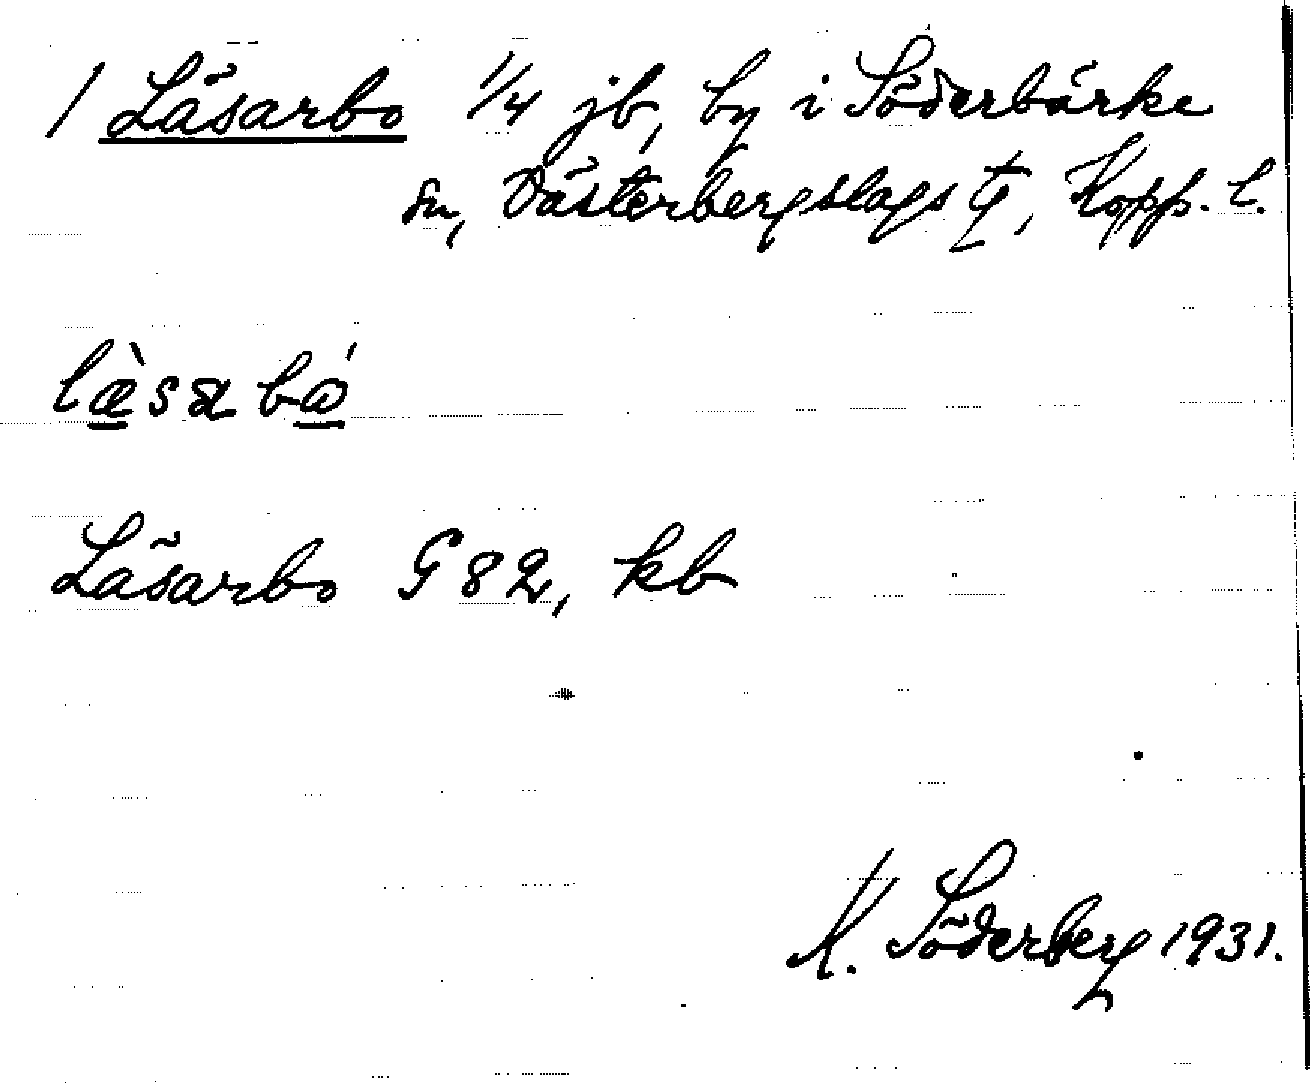 1 Läsarbo 1/4 jb, by i Söderbärke
sn, Västerbergslags tg, Kopp. l.
læ̀sabǻ
Läsarbo G 82, kb
K. Söderberg 1931.